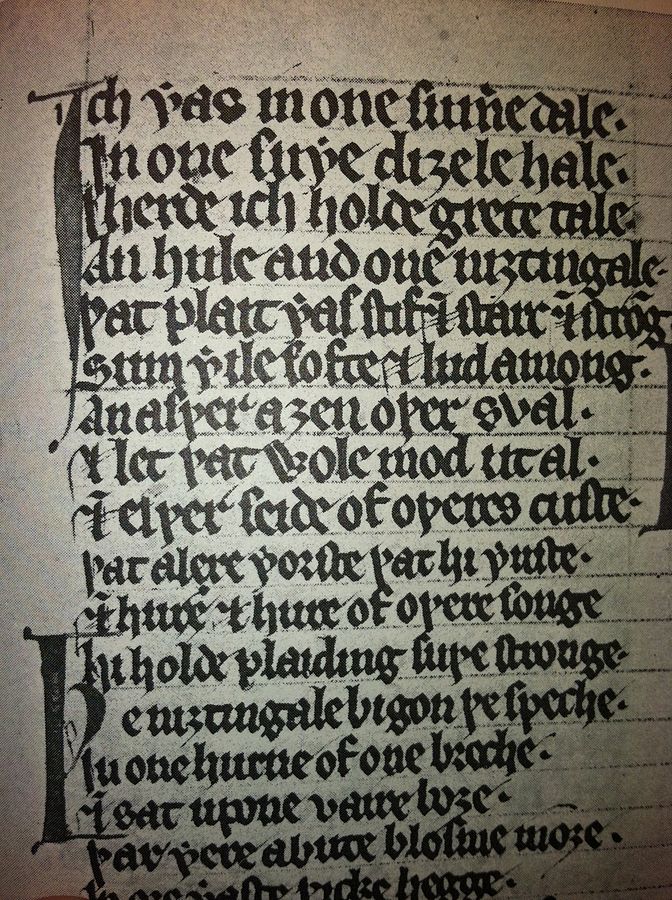 Ich ƿas in one sum̅e dale.
In one suþe diȝele hale.
Iherde ich holde grete tale.
An hule and one niȝtingale.
þat plait ƿas stif ⁊ starc ⁊ strōg
Sum ƿile softe ⁊ lud among.
An aiþer aȝen oþer sval.
⁊ let þat wole mod ut al.
⁊ eiþer seide of oþeres custe.
þat alere ƿorste þat hi ƿuste.
⁊ hure ⁊ hure of oþere songe
hi holde plaiding suþe stronge.
Þe niȝtingale bigon þe speche.
In one hurne of one breche.
⁊ sat upone vaire boȝe.
þar ƿere abute blosme inoȝe.
In ore ƿaste þicke hegge.